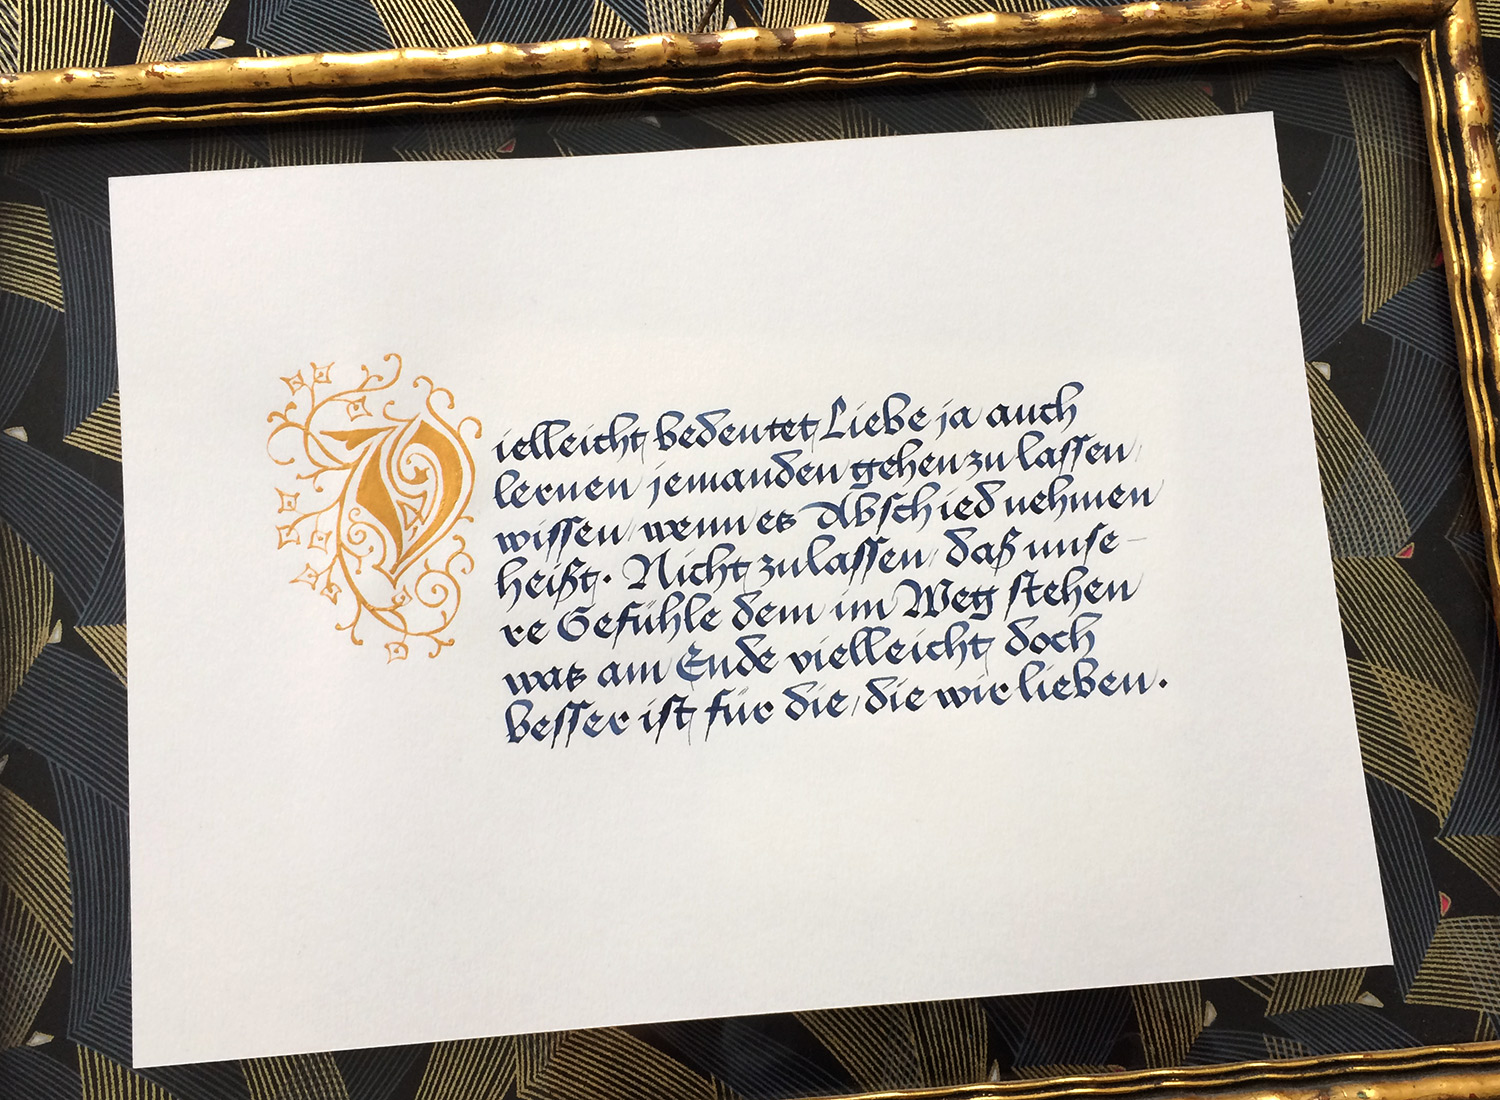 Vielleicht bedeutet Liebe ja auch
lernen jemanden gehen zu lassen,
wissen, wenn es Abschied nehmen
heißt. Nicht zulassen, daß unse-
re Gefühle dem im Weg stehen
was am Ende vielleicht doch
besser ist für die, die wir lieben.